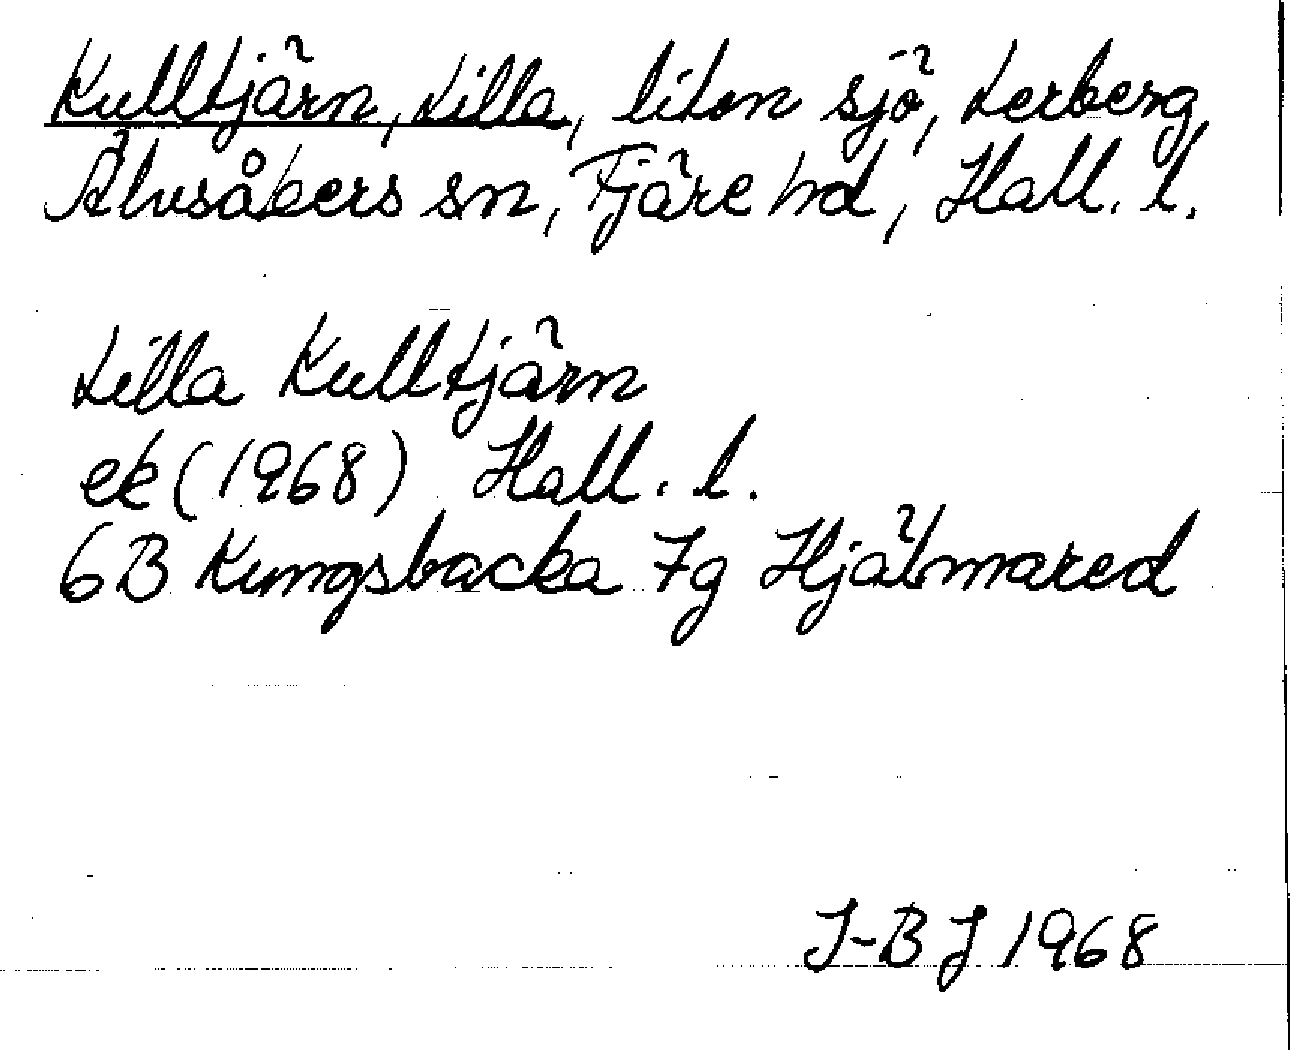 Kulltjärn, Lilla, liten sjö, Lerberg,
Älvsåkers sn, Fjäre hd, Hall. l.
Lilla Kulltjärn
ek (1968) Hall. l.
6B Kungsbacka 7g Hjälmared
I-B J 1968